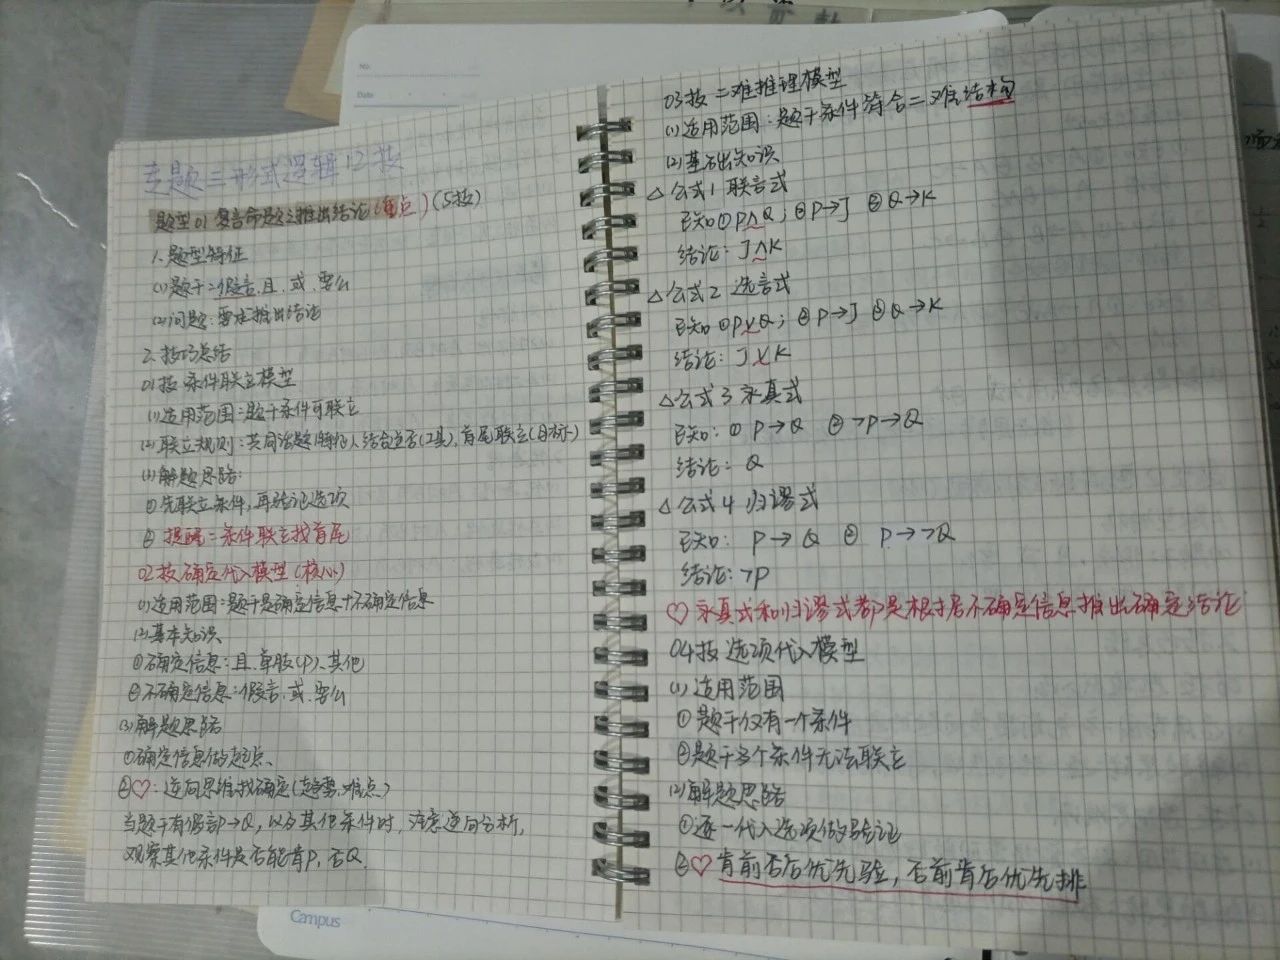 专题二形式逻辑12技
题型01 复言命题之推出结论(重点)(5技)
1.题型特征
(1)题干:假言.且.或.要么
(2)问题:要求推出结论
2.技巧总结
01技 条件联立模型
(1)适用范围:题干条件可联立
(2)联立规则:共同话题
首尾联立(目标)
(3)解题思路:
①先联立条件,再验证选项
② 提醒:条件联立找首尾
02技 确定代入模型(核心)
(1)适用范围:题干是确定信息+不确定信息
(2)基本知识
①确定信息:且.单肢(P)、其他
②不确定信息:假言.或.要么
(3)解题思路
①确定信息做起点、
②♡:逆向思维找确定(趋势.难点)
当题干有假言P→Q,以及其他条件时,注意逆向分析,
观察其他条件是否能肯P,否Q.
03技 二难推理模型
(1)适用范围:题干条件符合二难结构
(2)基础知识
△公式1 联言式
已知①P∧Q;②P→J ③Q→K
结论:J∧K
△公式2 选言式
已知①P∨Q;②P→J ③Q→K
结论:J∨K
△公式3 永真式
已知:① P→Q ②¬P→Q
结论:Q
△公式4 归谬式
已知: P→Q ② P→¬Q
结论:¬P
♡永真式和归谬式都是根据不确定信息推出确定结论
04技 选项代入模型
(1)适用范围
①题干仅有一个条件
②题干多个条件无法联立
(2)解题思路
①逐一代入选项做验证
②♡肯前否后优先验,否前肯后优先排
No.
Date
Campus